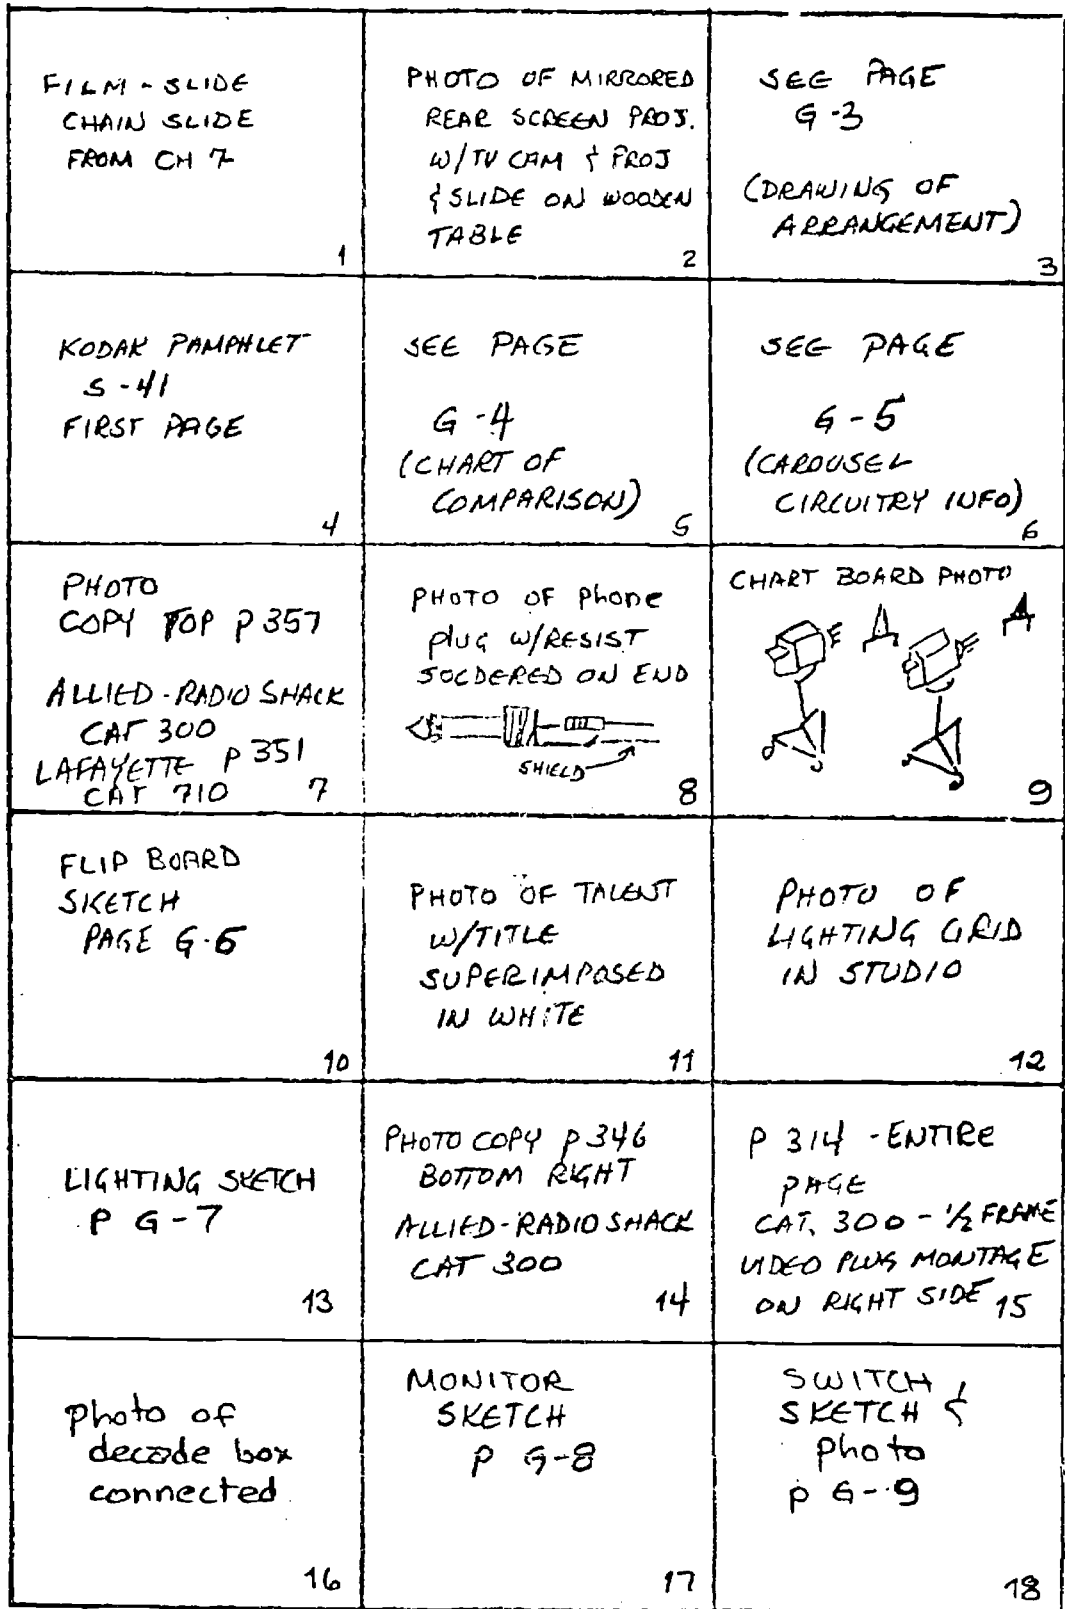 FILM - SLIDE
CHAIN SLIDE
FROM CH 7
1
PHOTO OF MIRRORED
REAR SCREEN PROJ.
W/TV CAM & PROJ
& SLIDE ON WOODEN
TABLE
2
SEE PAGE
G-3
(DRAWING OF
ARRANGEMENT)
3
KODAK PAMPHLET
S-41
FIRST PAGE
4
SEE PAGE
G-4
(CHART OF
COMPARISON)
5
SEE PAGE
G-5
(CAROUSEL
CIRCUITRY INFO)
6
PHOTO
COPY TOP P 357
ALLIED-RADIO SHACK
CAT 300
LAFAYETTE P 351
CAT 710
7
PHOTO OF Phone
plug W/RESIST
SOLDERED ON END
SHIELD
8
CHART BOARD PHOTO
9
FLIP BOARD
SKETCH
PAGE G-6
10
PHOTO OF TALENT
W/TITLE
SUPERIMPOSED
IN WHITE
11
PHOTO OF
LIGHTING GRID
IN STUDIO
12
LIGHTING SKETCH
P G-7
13
PHOTO COPY P 346
BOTTOM RIGHT
ALLIED-RADIO SHACK
CAT 300
14
P 314 - ENTIRE
PAGE
CAT. 300 - 1/2 FRAME
VIDEO PLUG MONTAGE
ON RIGHT SIDE
15
photo of
decade box
connected
16
MONITOR
SKETCH
P G-8
17
SWITCH
SKETCH &
Photo
p G-9
18